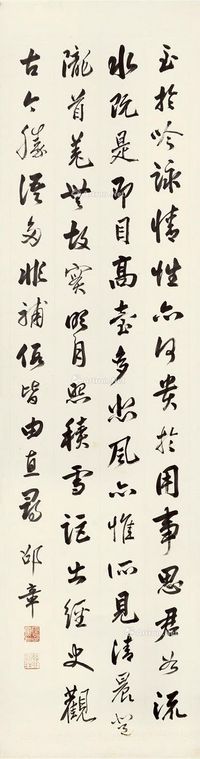 至於吟詠情性亦何貴於用事思君如流
水既是即目高臺多悲風亦惟所見清晨登
隴首羌無故實明月照積雪詎出經史觀
古今勝語多非補假皆由直尋 邵章